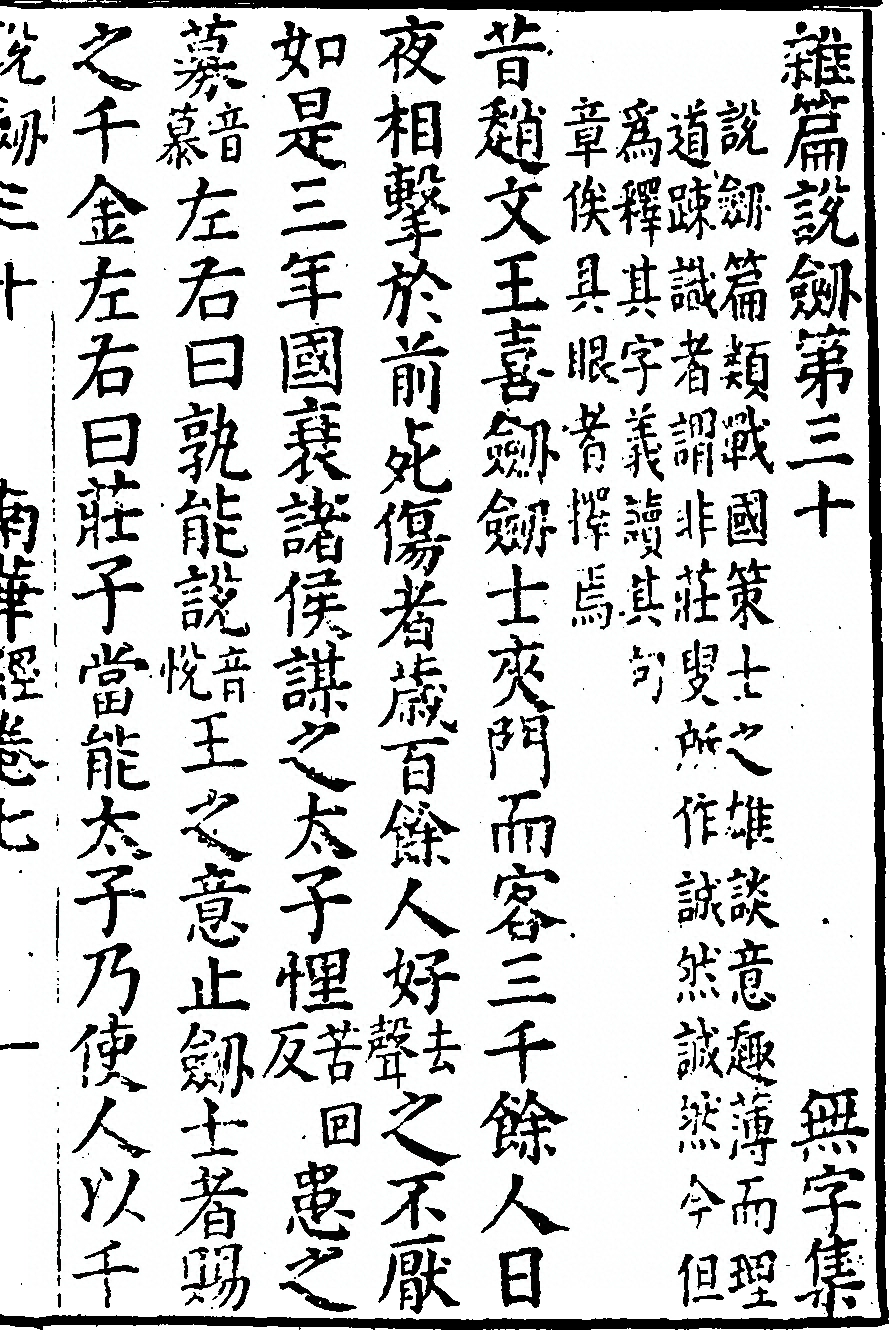 雜篇說劒第三十 無字集
說劒篇類戰國策士之雄談意趣薄而理
道踈識者謂非莊叟所作誠然誠然今但
爲釋其字義讀其句
章俟具眼者擇焉
昔趙文王喜劒劒士夾門而客三千餘人日
夜相擊於前死傷者歲百餘人好去聲之不厭
如是三年國衰諸侯謀之太子悝苦回反患之
募音慕左右曰孰能說音悅王之意止劒士者賜
之千金左右曰莊子當能太子乃使人以千
說劒三十 南華經卷七 一